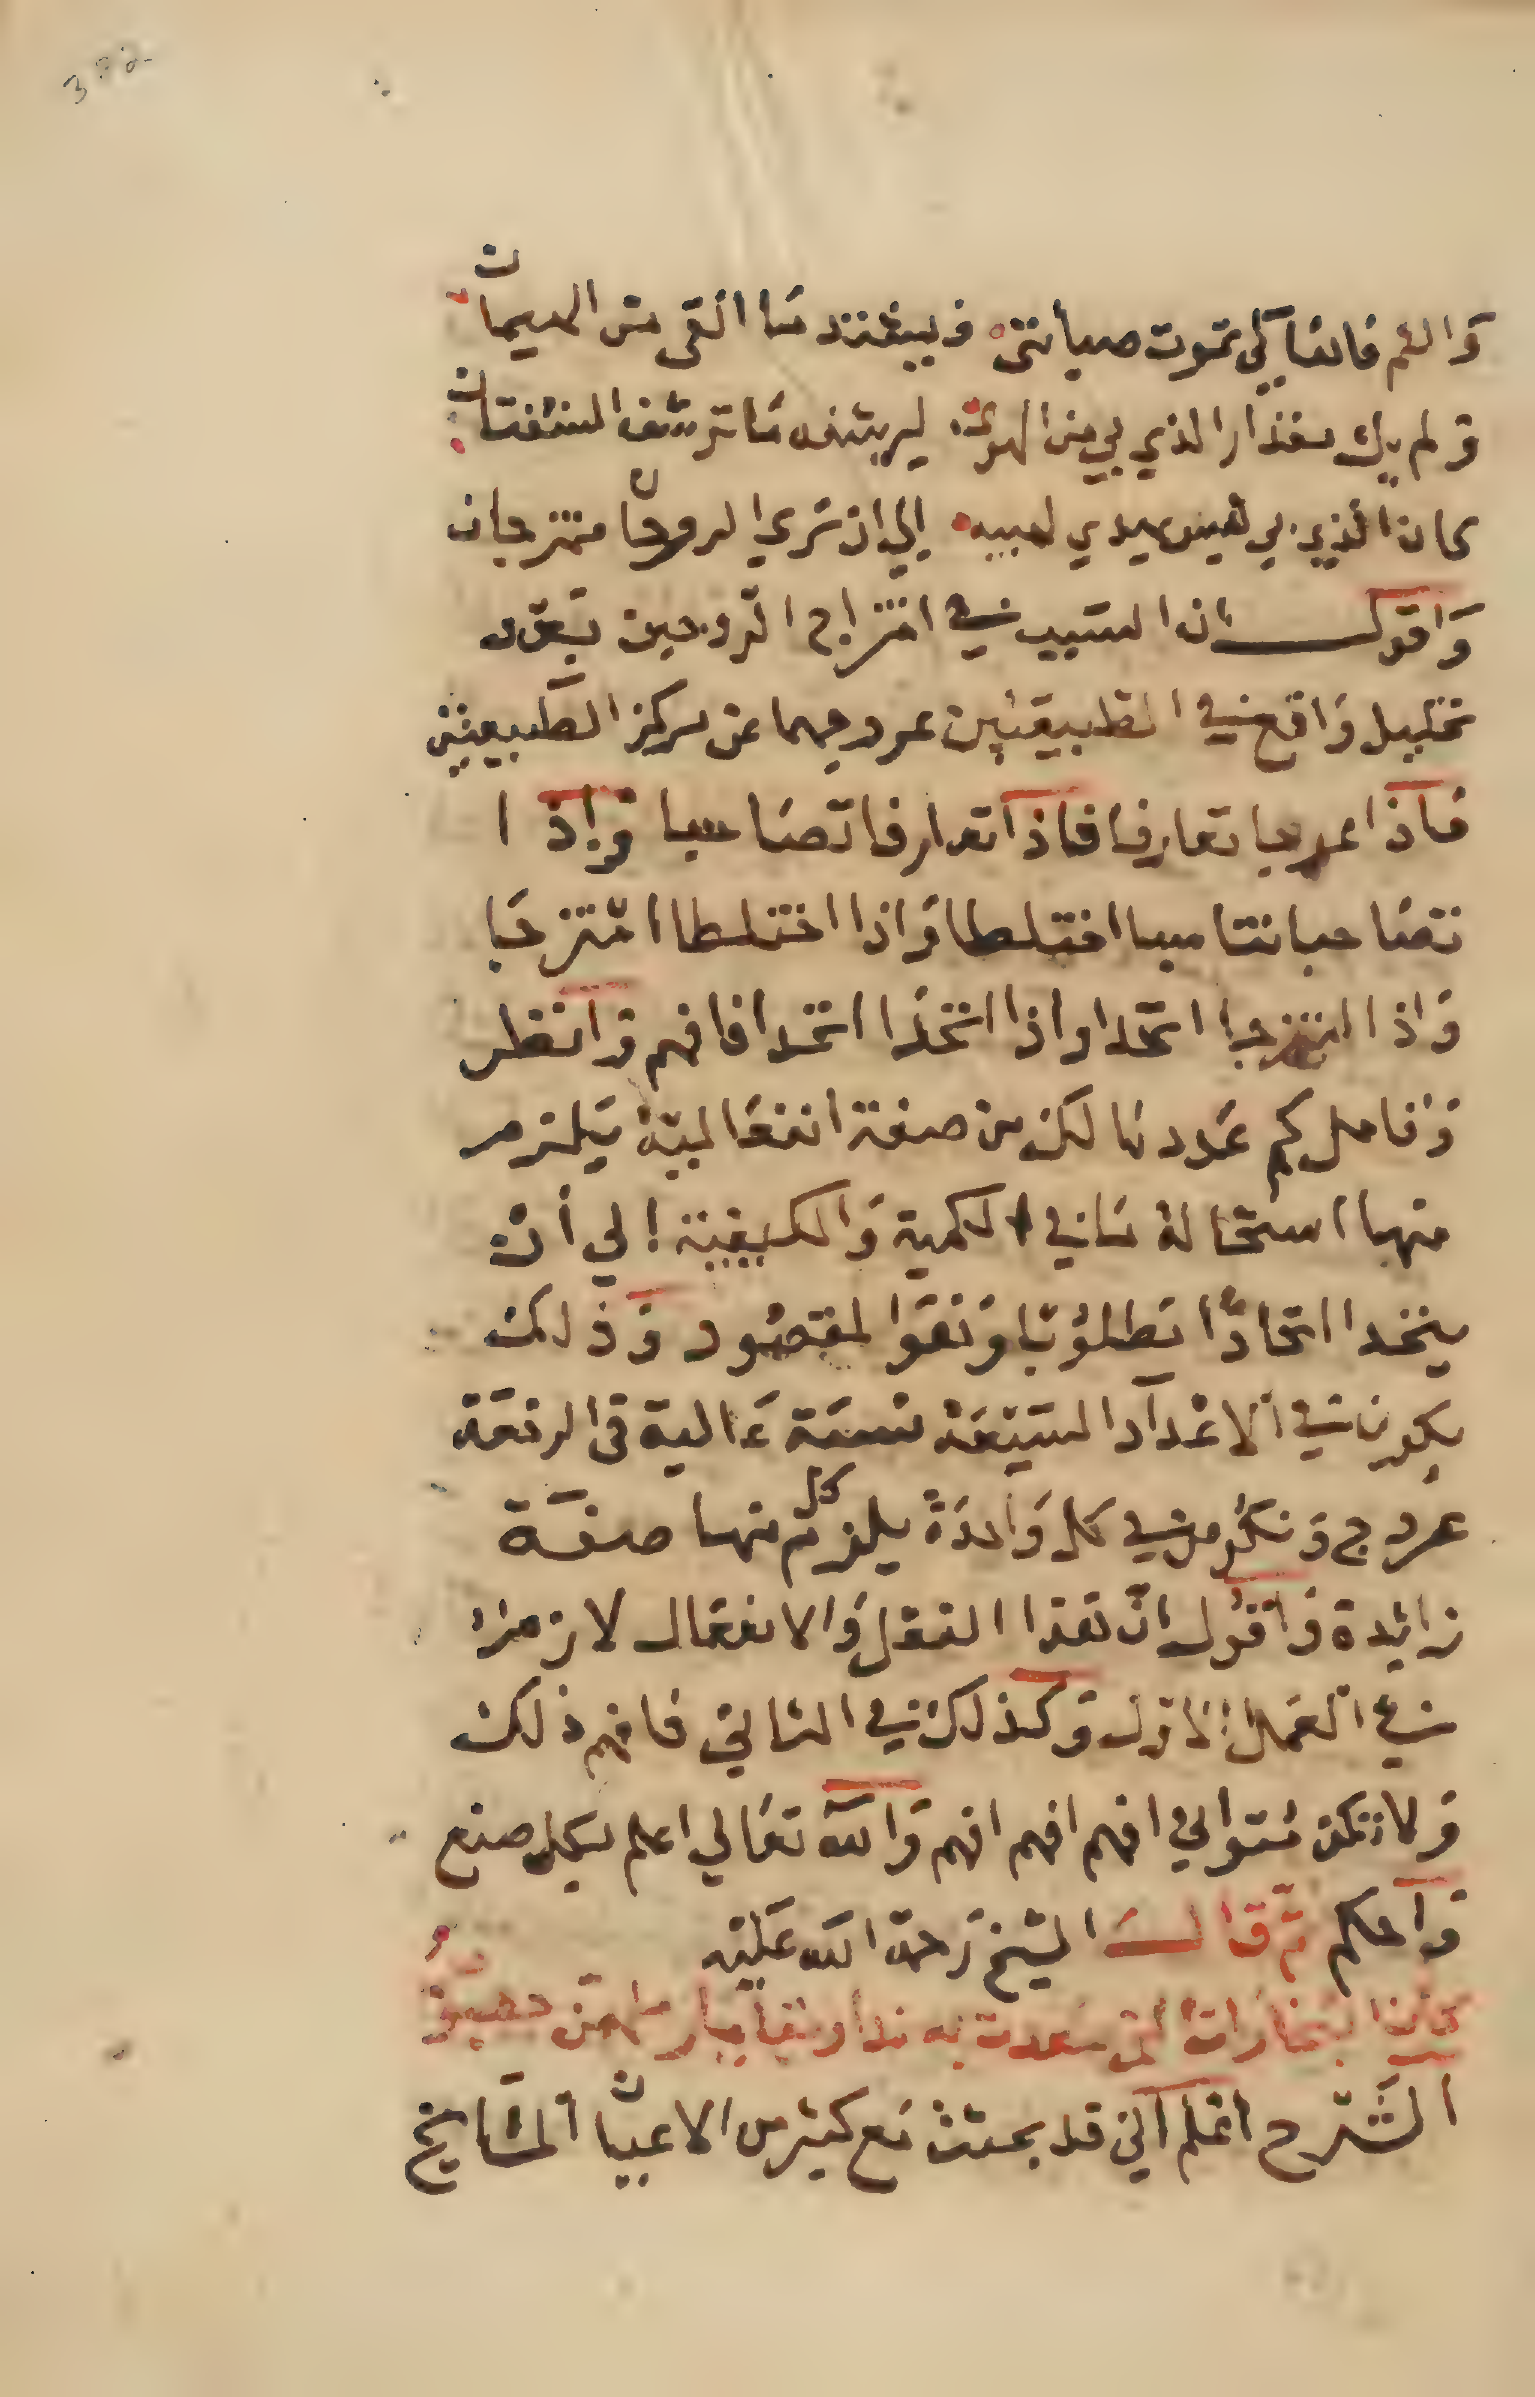 372
والثم فاها كي تموت صبابتي فيشتد ما القى من الهيمات
ولم يك مقدار الذي بي من الهوى ليرشفه ما ترشف الشفتان
كان الذي بي ليس يهدي لهيبه الي ان تري الروحان تمتزجان
واقول ان السبب في امتزاج الروحين بعد
تحليل واقع في الطبيعتين خروجهما عن مركز الطبيعتين
فاذا خرجا تعارفا فاذا تعارفا تصاحبا واذا
تصاحبا تناسبا اختلطا واذا اختلطا امتزجا
واذا امتزجا اتحدا واذا اتحدا اتحدا فافهم وانظر
وتامل كم عدد نالك من صفة انفعالية يلزم
منها استحالة ما في الكمية والكيفية الي أن
يتحدا اتحادًا مطلوبا وهو المقصود وذلك
يكون في الاعداد السبعة نسبة عالية في الرفعة
خروج وتكون في كل واحدة يلزم منها صفة
زائدة واقول ان هذا الفعل والانفعال لازم
في العمل الاول وكذلك في الثاني فافهم ذلك
ولا تكن متواني افهم افهم افهم والله تعالي اعلم بكل صنع
واحكم ثم قال الشيخ رحمة الله عليه
الشرح اعلم اني قد بحثت مع كثير من الاعيان المشايخ